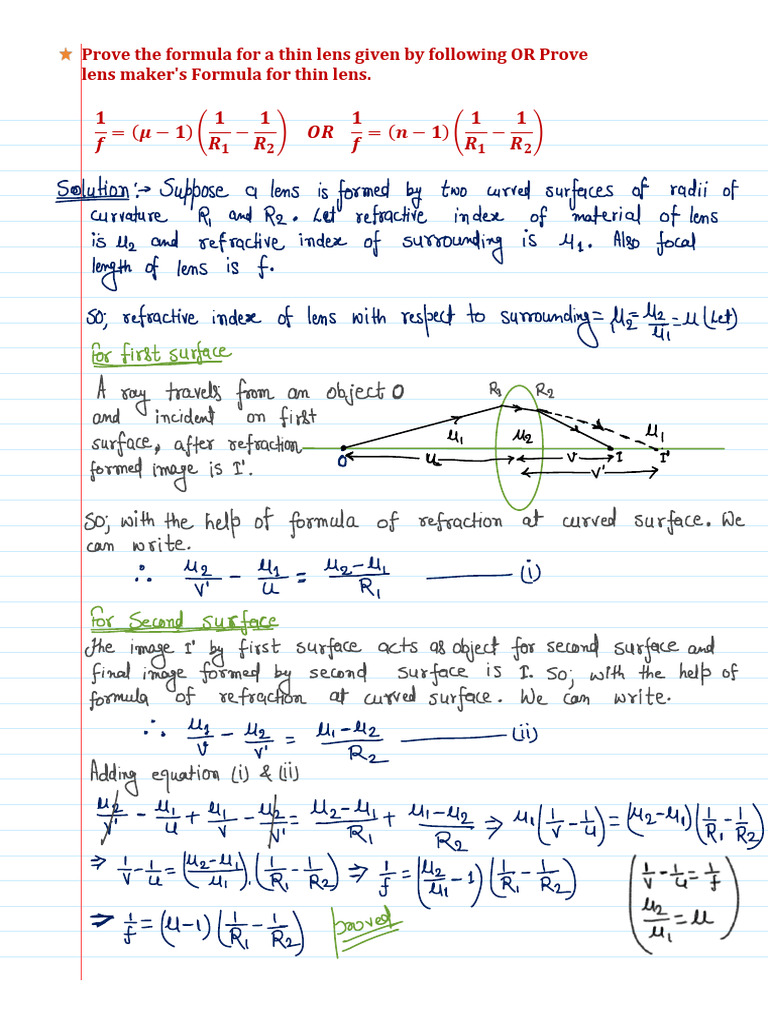 ★ Prove the formula for a thin lens given by following OR Prove
lens maker's Formula for thin lens.
1/f = (μ − 1)(1/R₁ − 1/R₂) OR 1/f = (n − 1)(1/R₁ − 1/R₂)
Solution:→ Suppose a lens is formed by two curved surfaces of radii of
curvature R₁ and R₂. Let refractive index of material of lens
is μ₂ and refractive index of surrounding is μ₁. Also focal
length of lens is f.
So; refractive index of lens with respect to surrounding = ₁μ₂ = μ₂/μ₁ = μ (Let)
for first surface
A ray travels from an object O
and incident on first
surface, after refraction
formed image is I'.
R₁ R₂
μ₁ μ₂ μ₁
O u v I I'
v'
So; with the help of formula of refraction at curved surface. We
can write.
∴ μ₂/v' − μ₁/u = (μ₂−μ₁)/R₁ ——— (i)
for second surface
The image I' by first surface acts as object for second surface and
final image formed by second surface is I. So; with the help of
formula of refraction at curved surface. We can write.
∴ μ₁/v − μ₂/v' = (μ₁−μ₂)/R₂ ——— (ii)
Adding equation (i) & (ii)
μ₂/v' − μ₁/u + μ₁/v − μ₂/v' = (μ₂−μ₁)/R₁ + (μ₁−μ₂)/R₂ ⇒ μ₁(1/v − 1/u) = (μ₂−μ₁)(1/R₁ − 1/R₂)
⇒ 1/v − 1/u = ((μ₂−μ₁)/μ₁).(1/R₁ − 1/R₂) ⇒ 1/f = (μ₂/μ₁ − 1)(1/R₁ − 1/R₂)
(1/v − 1/u = 1/f
μ₂/μ₁ = μ)
⇒ 1/f = (μ−1)(1/R₁ − 1/R₂) proved